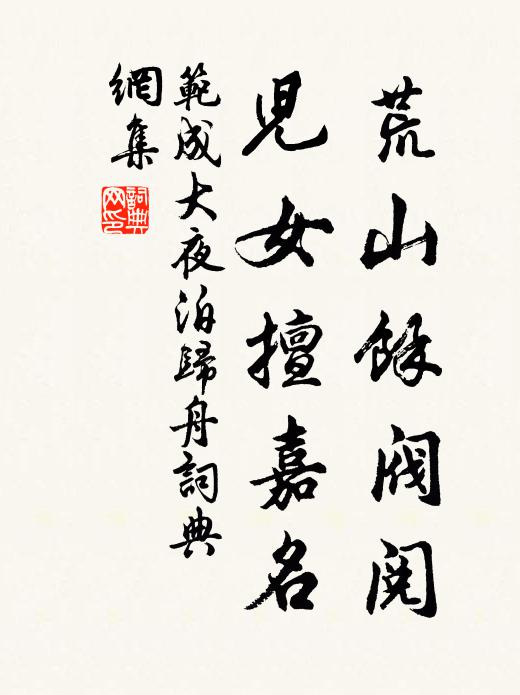 荒山餘閥閱
兒女擅嘉名
範成大夜泊歸舟詞典
網集
詞典网印